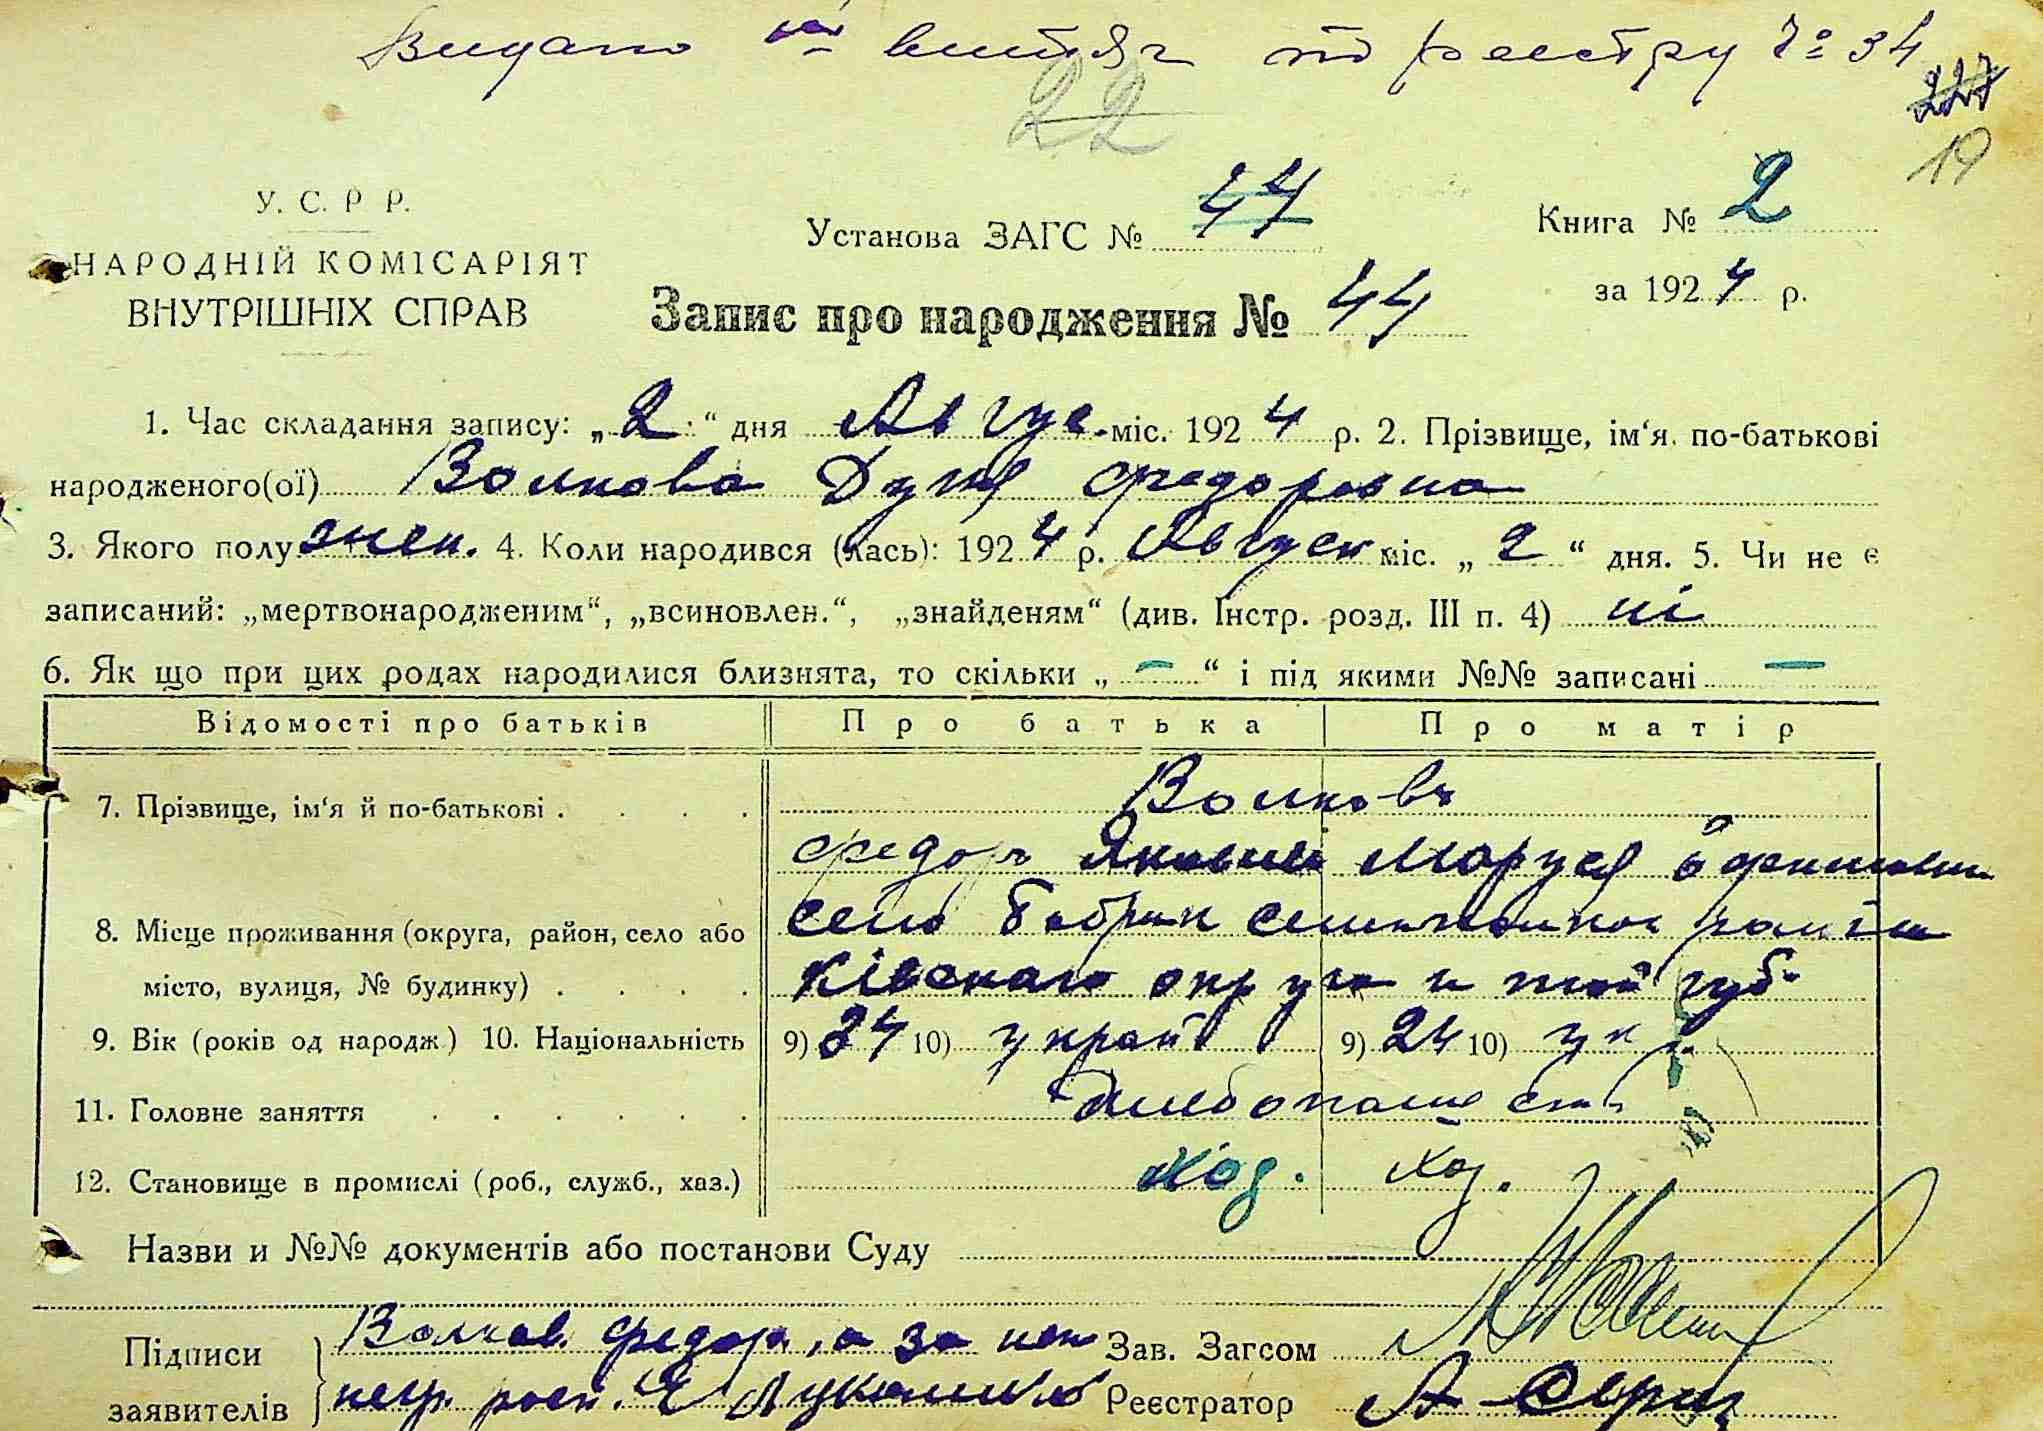 Видано витяг по реєстру № 34
227
22
19
У. С. Р Р.
НАРОДНІЙ КОМІСАРІЯТ
ВНУТРІШНІХ СПРАВ
Установа ЗАГС № 44
Книга № 2
за 1924 р.
Запис про народження № 44
1. Час складання запису: „2“ дня Авгус. міс. 1924 р. 2. Прізвище, ім‘я. по-батькові
народженого(ої) Волкова Дуня Федоровна
3. Якого полу жен. 4. Коли народився (лась): 1924 р. Август міс. „2“ дня. 5. Чи не є
записаний: „мертвонародженим“, „всиновлен.“, „знайденям“ (див. Інстр. розд. III п. 4) ні
6. Як що при цих родах народилися близнята, то скільки „ — “ і під якими №№ записані —
Відомості про батьків Про батька Про матір
7. Прізвище, ім‘я й по-батькові . . . . Волковы
Федор Яковлев Маруся
8. Місце проживання (округа, район, село або село Бобрик
місто, вулиця, № будинку) . . . . Київскаго округа и той губ.
9. Вік (років од народж.) 10. Національність 9) 24 10) украй 9) 24 10) ук
11. Головне заняття . . . . . . Хлебопашество
12. Становище в промислі (роб., служб., хаз.) хоз. хоз.
Назви и №№ документів або постанови Суду
Підписи
заявителів
Волков Федор, а за не
негр. росп.
Зав. Загсом
Реєстратор А